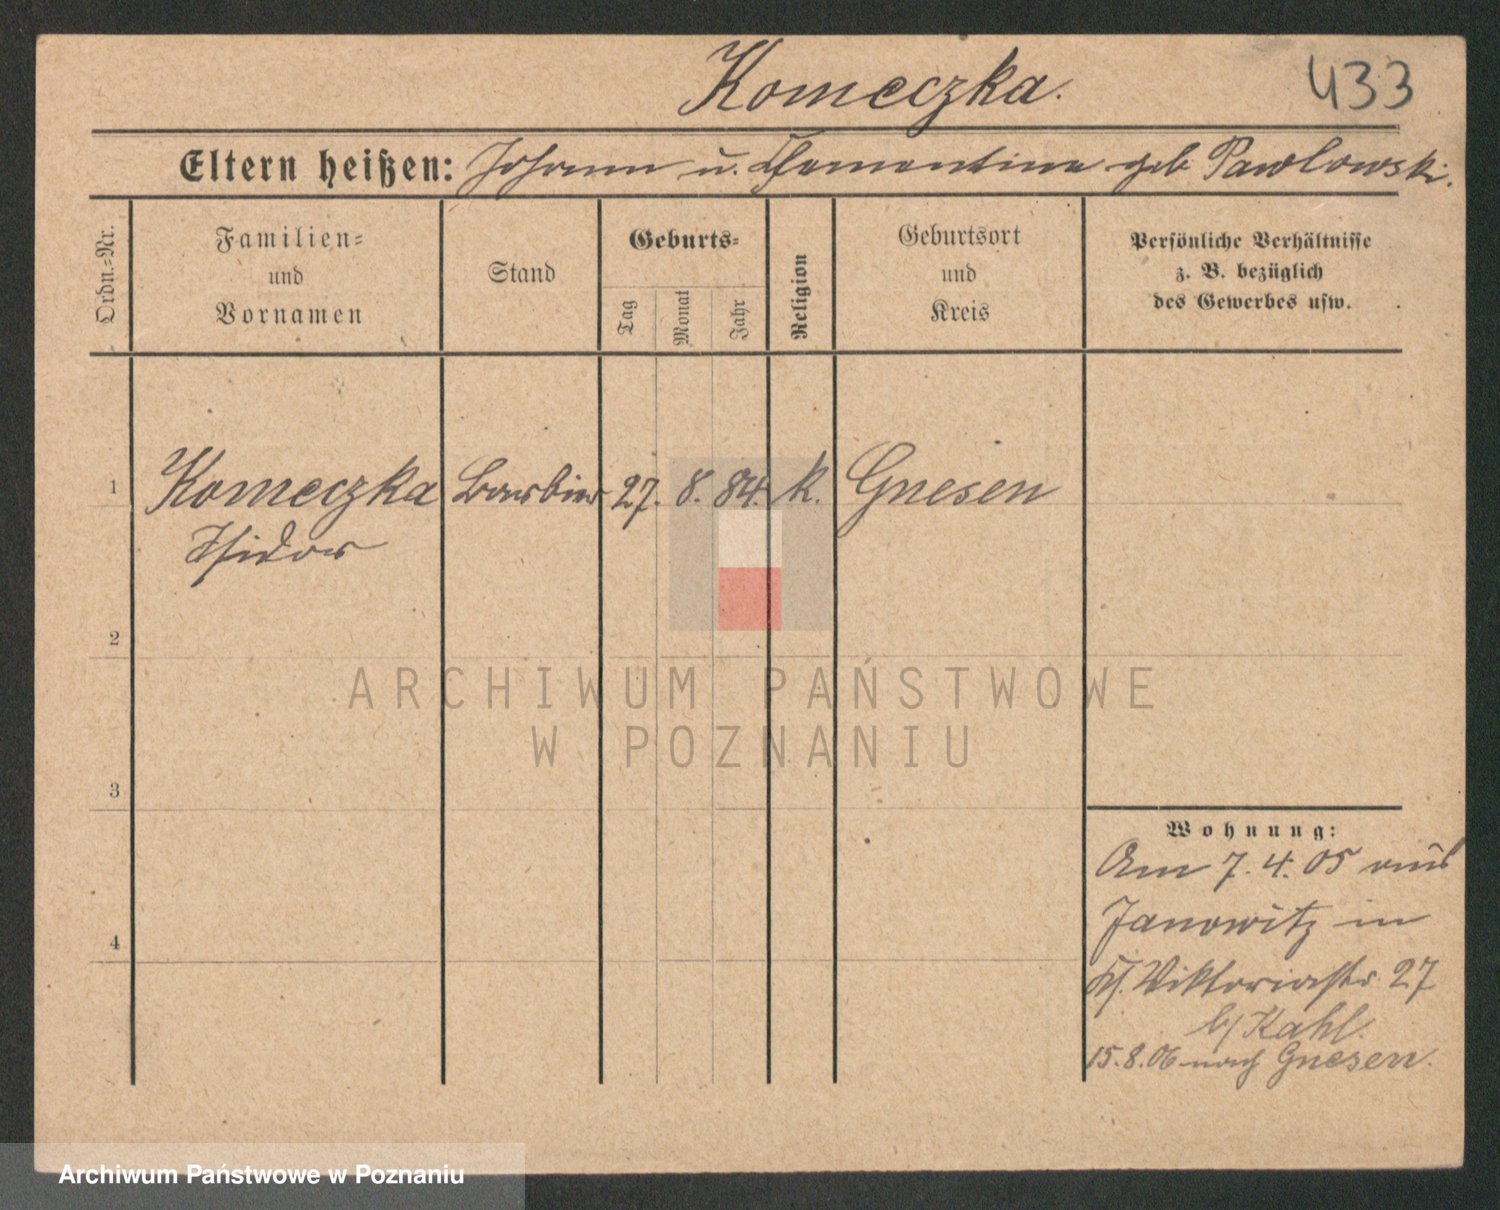 Komeczka.
433
Eltern heißen: Johann u. Clementine geb Pawlowski.
Ordn.-Nr.
Familien-
und
Vornamen
Stand
Geburts-
Tag
Monat
Jahr
Religion
Geburtsort
und
Kreis
Persönliche Verhältnisse
z. B. bezüglich
des Gewerbes usw.
1
Komeczka Barbier 27. 8. 84. K. Gnesen
Isidor
2
3
4
Wohnung:
Am 7. 4. 05 aus
Janowitz in
Viktoriastr. 27
b/ Kahl.
15.8.06 nach Gnesen.
ARCHIWUM PAŃSTWOWE
W POZNANIU
Archiwum Państwowe w Poznaniu